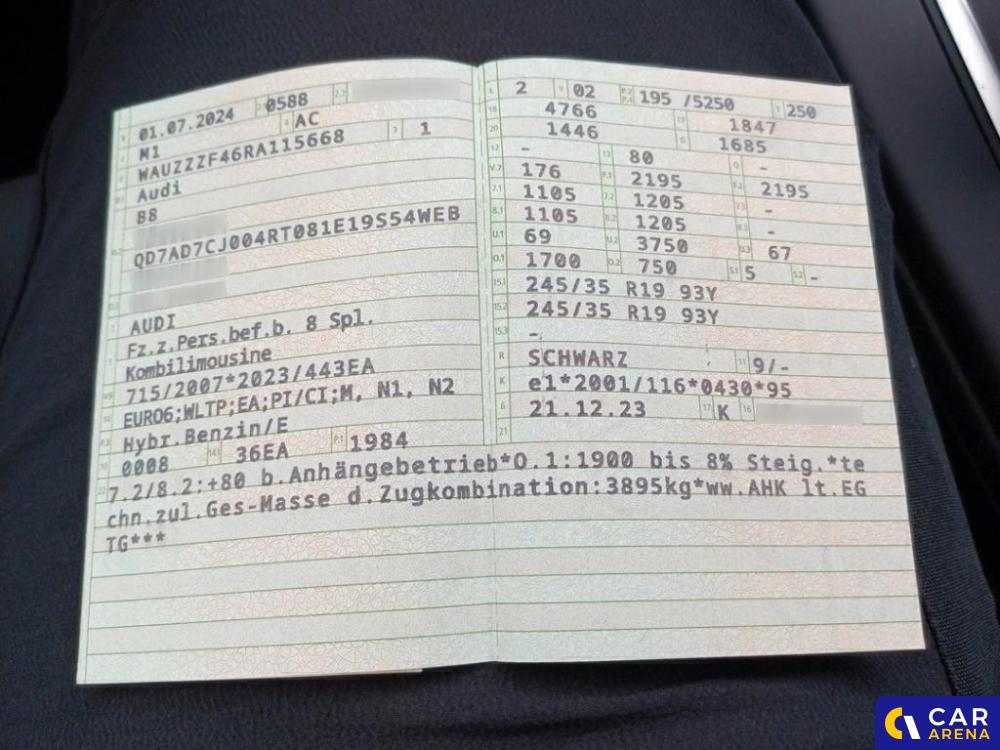 01.07.2024 0588
M1 AC
WAUZZZF46RA115668 1
Audi
B8
QD7AD7CJ004RT081E19S54WEB
AUDI
Fz.z.Pers.bef.b. 8 Spl.
Kombilimousine
715/2007*2023/443EA
EURO6;WLTP;EA;PI/CI;M, N1, N2
Hybr.Benzin/E
0008 36EA 1984
2 02 195 /5250 250
4766 1847
1446 1685
- 80 -
176 2195 2195
1105 1205 -
1105 1205 -
69 3750 67
1700 750 5 -
245/35 R19 93Y
245/35 R19 93Y
-
R SCHWARZ 9/-
K e1*2001/116*0430*95
6 21.12.23 17 K 16
21
7.2/8.2:+80 b.Anhängebetrieb*O.1:1900 bis 8% Steig.*te
chn.zul.Ges-Masse d.Zugkombination:3895kg*ww.AHK lt.EG
TG***
CAR
ARENA